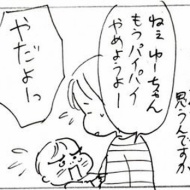 思うんですか
ねぇ ゆーちゃん
もうパイパイ
やめようよー
やだよーっ